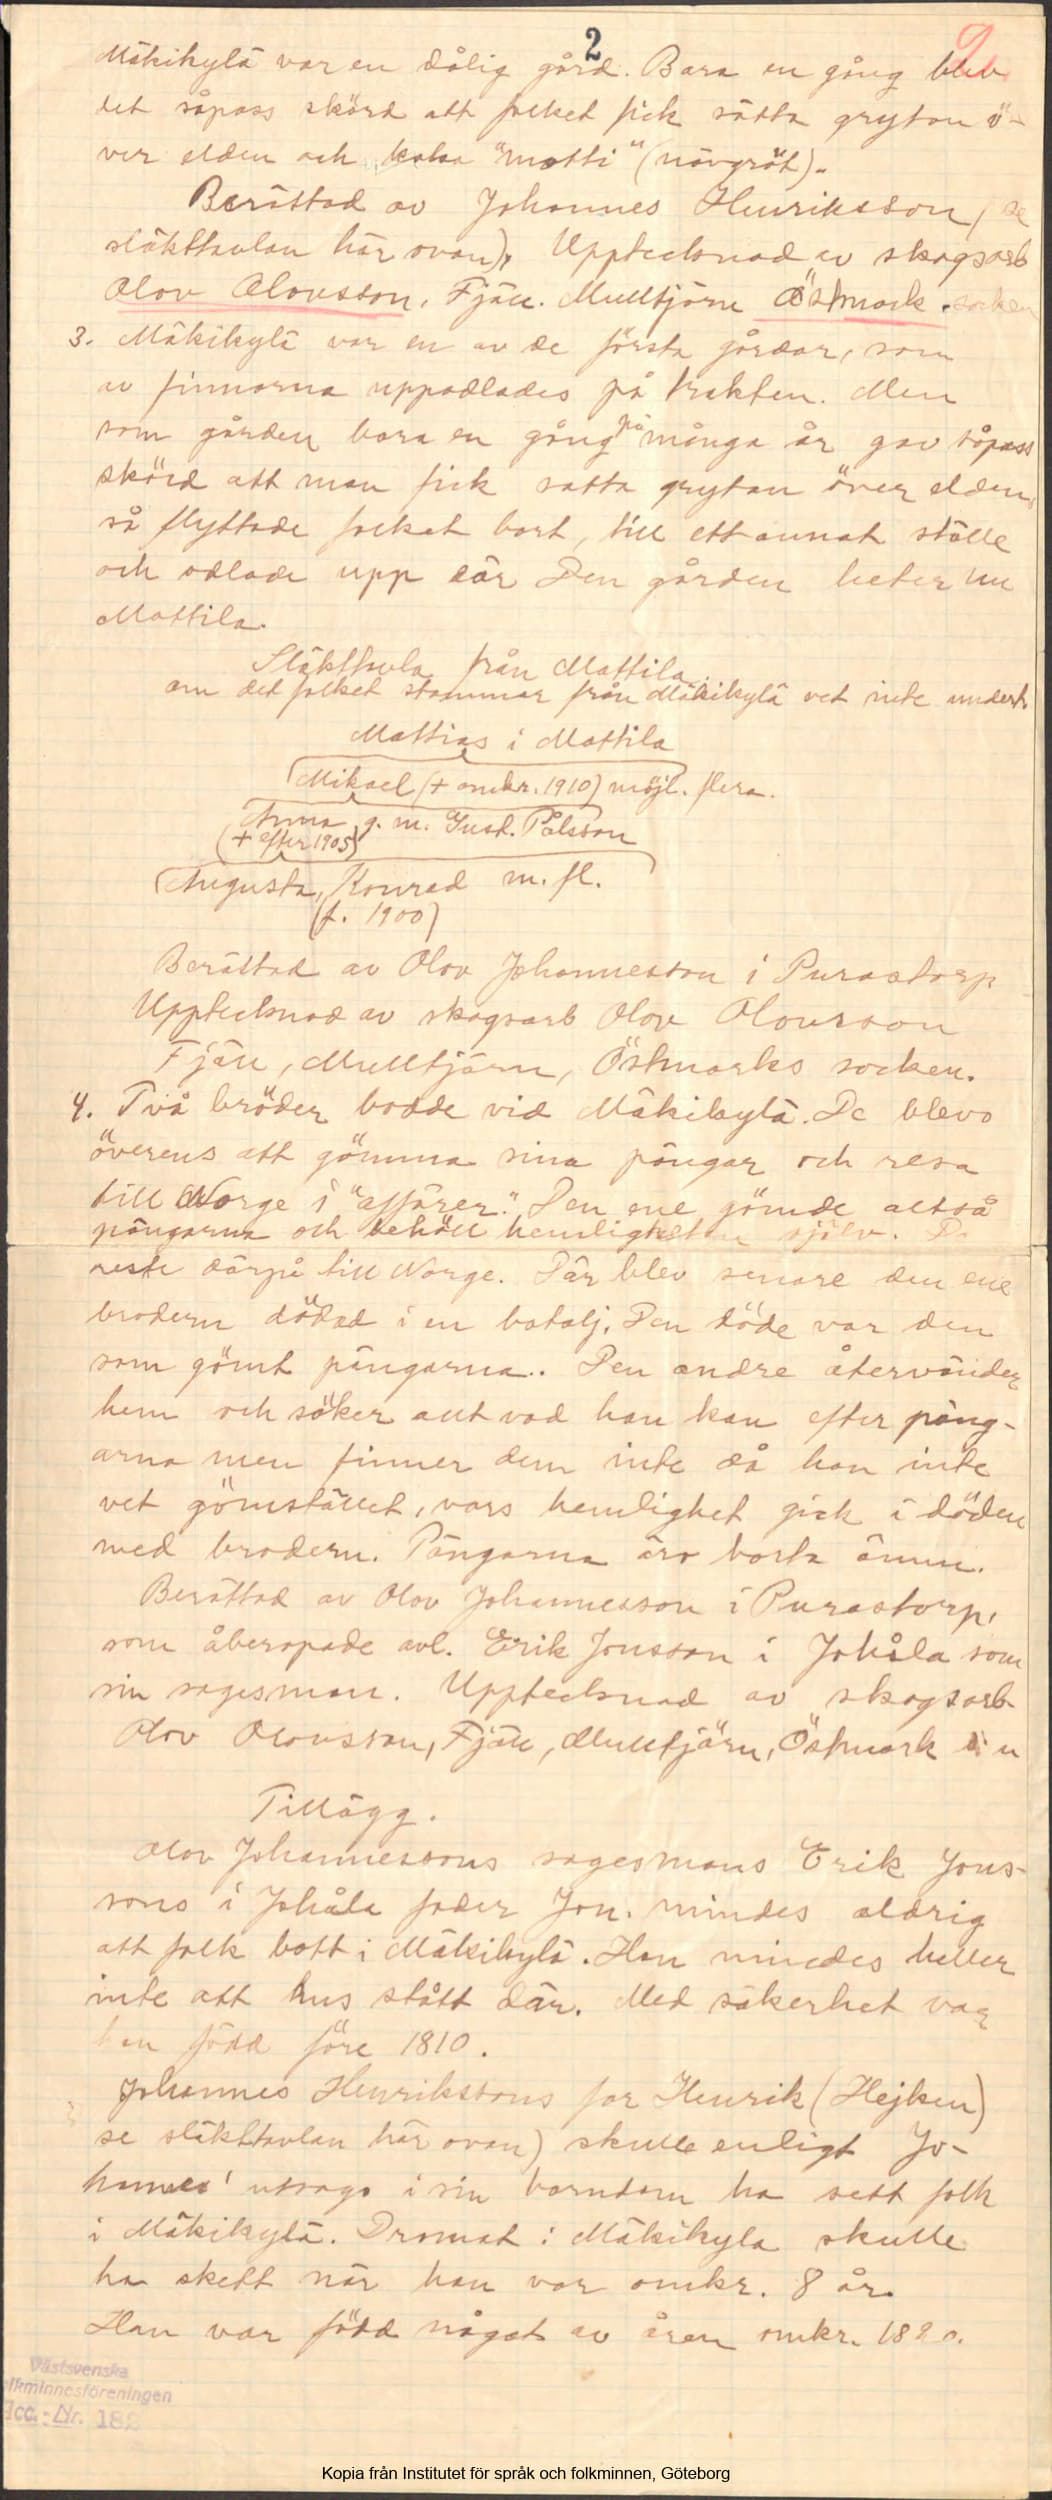 2
Mäkikylä var en dålig gård. Bara en gång blev
det såpass skörd att folket fick sätta grytan ö-
ver elden och koka "motti" (nävgröt).
Berättad av Johannes Henriksson, se
släkttavlan här ovan). Upptecknad av skogsarb
Olov Olovsson, Fjäll. Mulltjärn Östmark. socken
3. Mäkikylä var en av de första gårdar, som
av finnarna uppodlades på trakten. Men
som gården bara en gång på många år gav såpass
skörd att man fick satta grytan över elden,
så flyttade folket bort, till ett annat ställe
och odlade upp där Den gården heter nu
Mattila.
Släkttavla från Mattila.
om det folket stammar från Mäkikylä vet inte undert.
Mattias i Mattila
Mikael (+ omkr. 1910) möjl. flera.
Anna g. m. Gust. Pålsson
(+ efter 1905)
Augusta, Konrad m. fl.
(f. 1900)
Berättad av Olov Johannesson i Purastorp
Upptecknad av skogsarb Olov Olovsson
Fjäll, Mulltjärn, Östmarks socken.
4. Två bröder bodde vid Mäkikylä. De blevo
överens att gömma sina pängar och resa
till Norge i "affärer." Den ene gömde altså
pängarna och behöll hemligheten själv. De
reste därpå till Norge. Där blev senare den ene
brodern dödad i en batalj. Den döde var den
som gömt pängarna.. Den andre återvänder
hem och söker allt vad han kan efter päng-
arna men finner dem inte då han inte
vet gömstället, vars hemlighet gick i döden
med brodern. Pängarna äro borta ännu.
Berättad av Olov Johannesson i Purastorp,
som åberopade avl. Erik Jonsson i Johåla som
sin sagesman. Upptecknad av skogsarb
Olov Olovsson, Fjäll, Mulltjärn, Östmark
Tillägg.
Olov Johannessons sagesmans Erik Jons-
sons i Johåla fader Jon. mindes aldrig
att folk bott i Mäkikylä. Han mindes heller
inte att hus stått där. Med säkerhet var
han född före 1810.
Johannes Henrikssons far Henrik (Hejken)
se släkttavlan här ovan) skulle enligt Jo-
hannes' utsago i sin barndom ha sett folk
i Mäkikylä. Dramat i Mäkikyla skulle
ha skett när han var omkr. 8 år.
Han var född något av åren omkr. 1820.
Västsvenska
olkminnesföreningen
Acc.-Nr. 182
Kopia från Institutet för språk och folkminnen, Göteborg